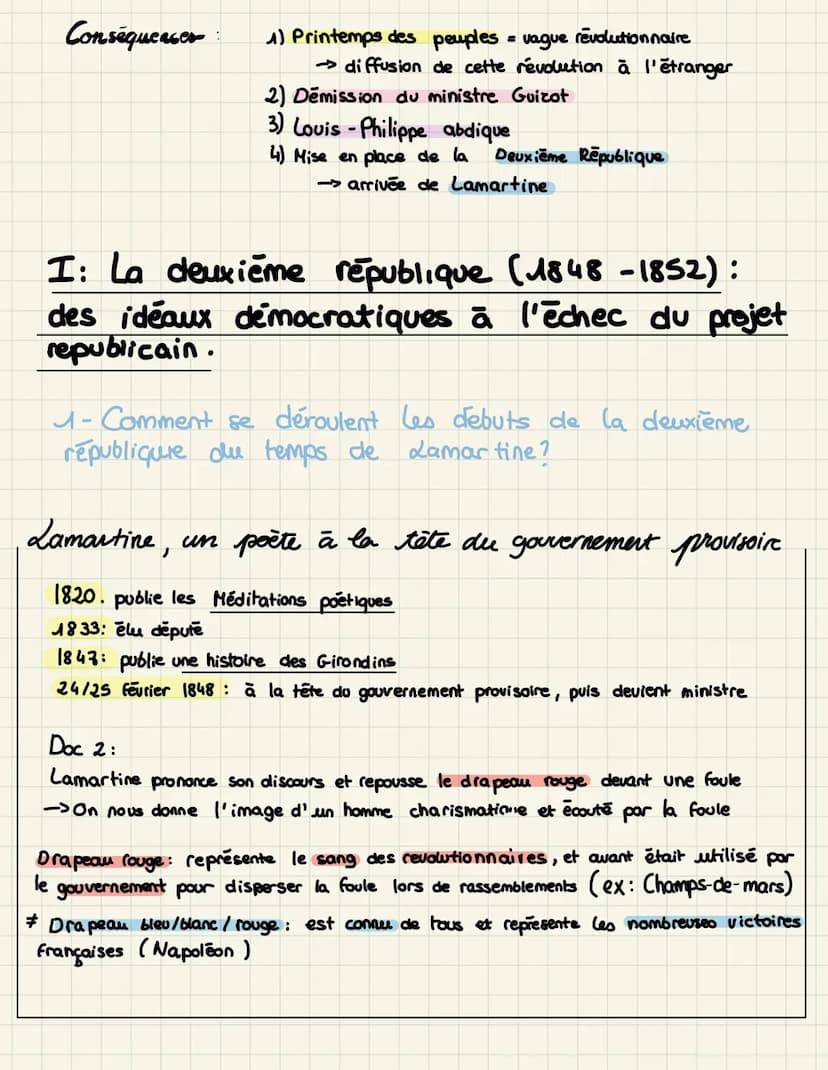 Conséquences : 1) Printemps des peuples = vague révolutionnaire
→ diffusion de cette révolution à l'étranger
2) Démission du ministre Guizot
3) Louis-Philippe abdique
4) Mise en place de la Deuxième République
→ arrivée de Lamartine
I: La deuxième république (1848-1852) :
des idéaux démocratiques à l'échec du projet
republicain.
1- Comment se déroulent les debuts de la deuxième
république du temps de Lamartine?
Lamartine, un poète à la tête du gouvernement provisoire
1820. publie les Méditations poétiques
1833: élu député
1847: publie une histoire des Girondins
24/25 février 1848 : à la tête du gouvernement provisoire, puis devient ministre
Doc 2:
Lamartine prononce son discours et repousse le drapeau rouge devant une foule
→On nous donne l'image d'un homme charismatique et écouté par la foule
Drapeau rouge: représente le sang des revolutionnaires, et avant était utilisé par
le gouvernement pour disperser la foule lors de rassemblements (ex: Champs-de-mars)
≠ Drapeau bleu/blanc/rouge: est connu de tous et représente les nombreuses victoires
françaises (Napoléon)